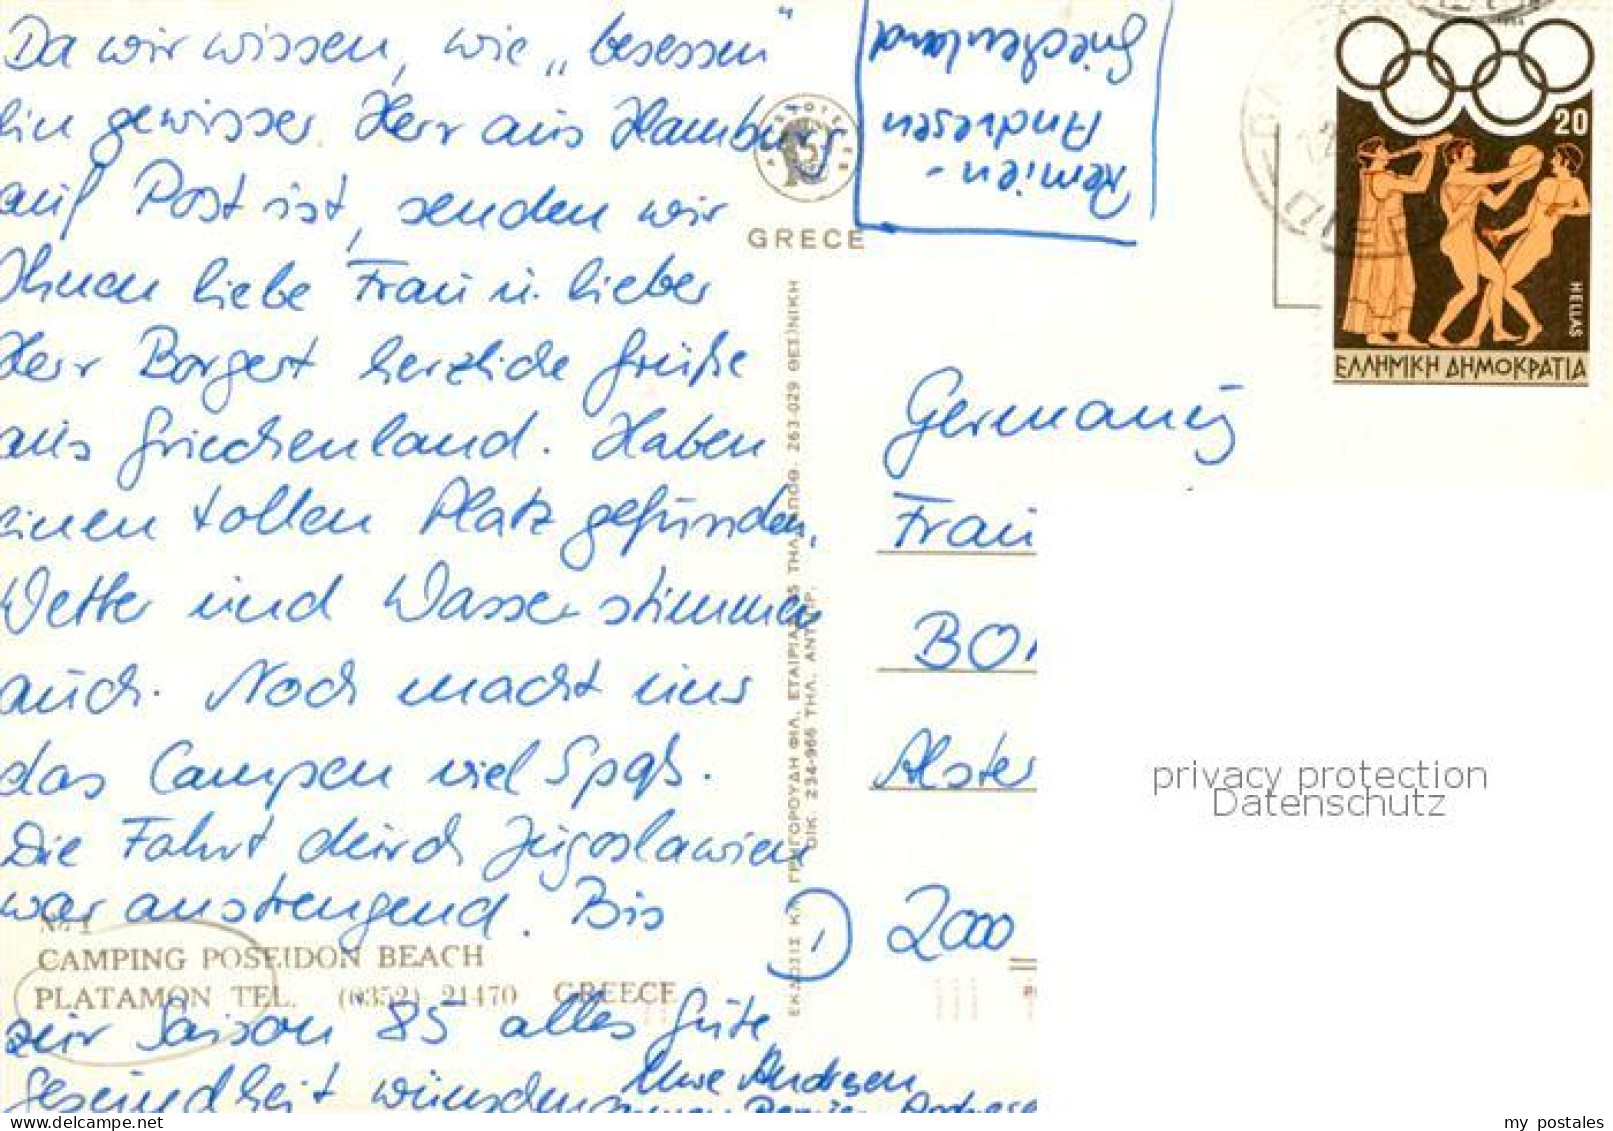 Da wir wissen, wie „besessen"
ein gewisser Herr aus Hamburg
auf Post ist, senden wir
Ihnen liebe Frau u. lieber
Herr Borgert herzliche Grüße
aus Griechenland. Haben
einen tollen Platz gefunden,
Wetter und Wasser stimmen
auch. Noch macht uns
das Campen viel Spaß.
Die Fahrt durch Jugoslawien
war anstrengend. Bis
No 1
CAMPING POSEIDON BEACH
PLATAMON TEL. (0352) 21470 GREECE
zur Saison 85 alles Gute
Gesundheit wünschen
Uwe Andresen
GRECE
ΕΚΔΟΣΙΣ ΓΡΗΓΟΡΟΥΔΗ ΦΙΛ. ΕΤΑΙΡΙΑΣ ΤΗΛ. ΑΠΟΘ. 263-029 ΘΕΣ)ΝΙΚΗ
ΟΙΚ. 234-966 ΤΗΛ. ΑΝΤ/ΠΡ.
Remien-
Andresen
Griechenland
20
HELLAS
ΕΛΛΗΜΙΚΗ ΔΗΜΟΚΡΑΤΙΑ
Germany
Frau
BO
Alster
D 2000
privacy protection
Datenschutz
my postales